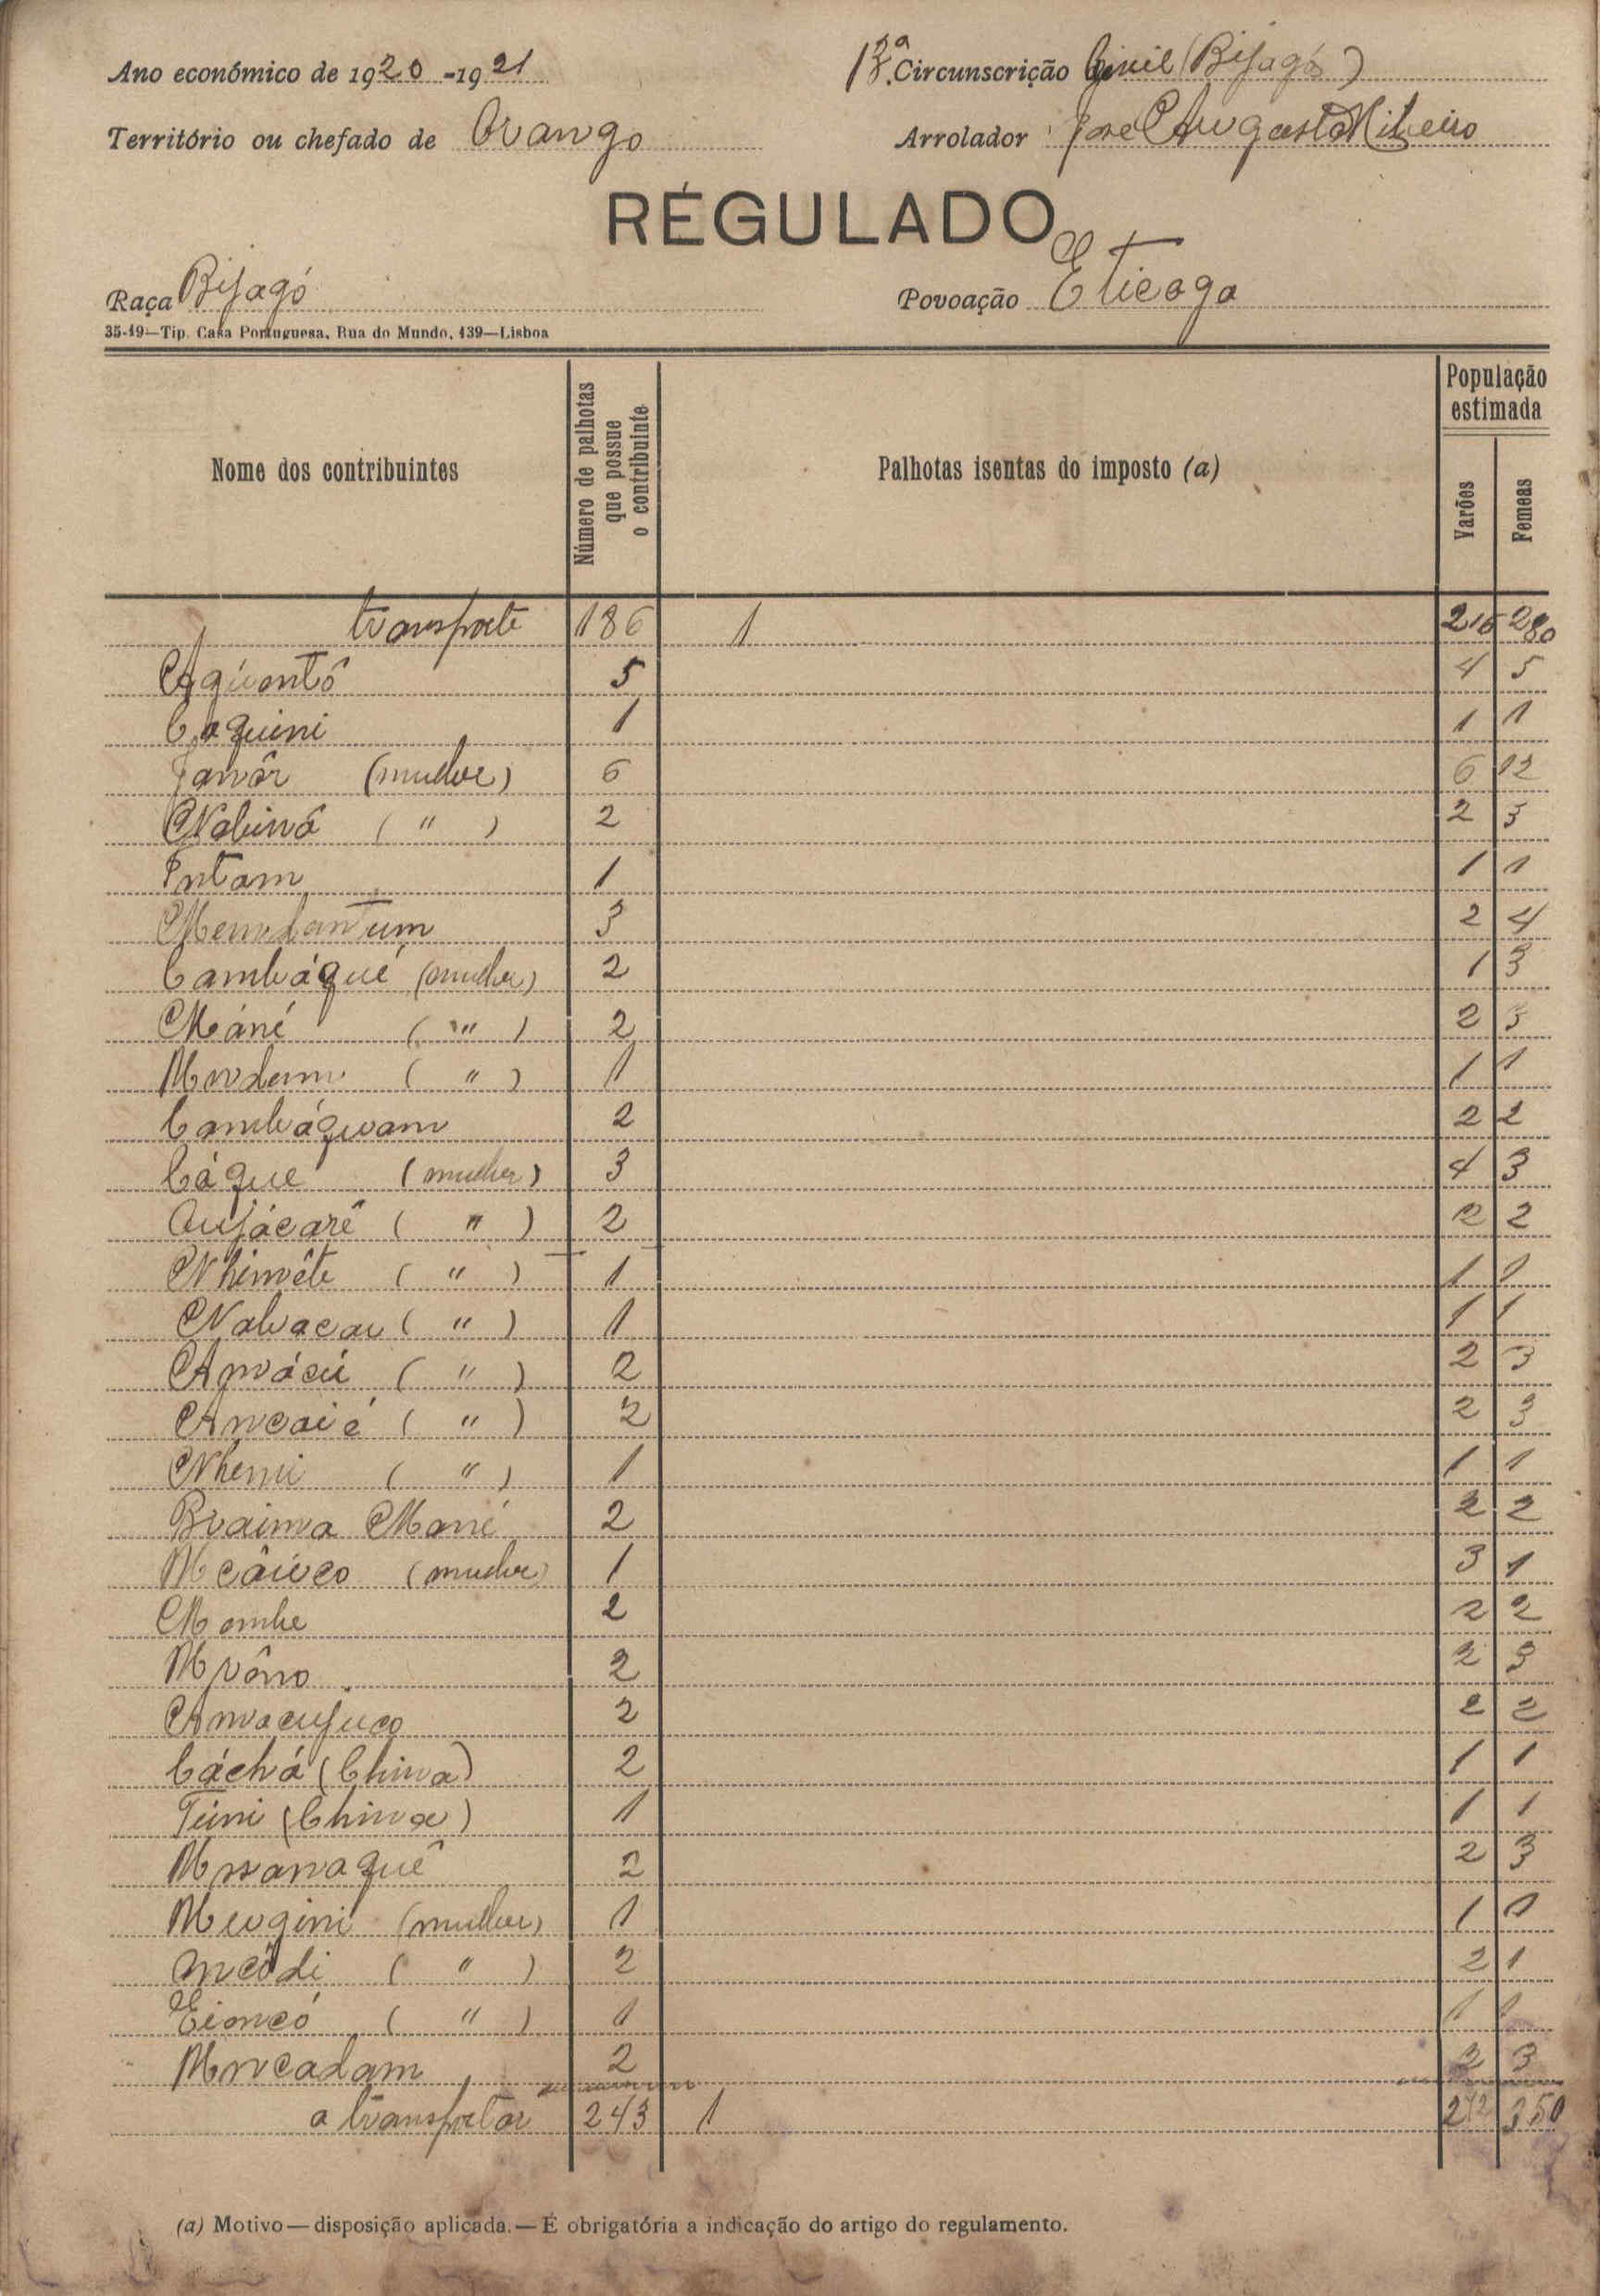 Ano económico de 1920-1921
13ª Circunscrição Civil (Bijagós)
Território ou chefado de Orango
Arrolador José Augusto Ribeiro
REGULADO
Raça Bijagó
Povoação Eticoga
35-19—Tip. Casa Portuguesa, Rua do Mundo, 139—Lisboa
Nome dos contribuintes Número de palhotas que possue o contribuinte Palhotas isentas do imposto (a) População estimada Varões Femeas
transporte 186 1 216 280
Aquontô 5 4 5
Coquini 1 1 1
Janôr (mulher) 6 6 12
Nabinô ( " ) 2 2 3
Intam 1 1 1
3 2 4
Cambáqué (mulher) 2 1 3
Máné ( " ) 2 2 3
( " ) 1 1 1
Cambáquam 2 2 2
Cáque (mulher) 3 4 3
Oujácarê ( " ) 2 2 2
Nhinvête ( " ) 1 1 1
Nabacau ( " ) 1 1 1
( " ) 2 2 3
Ancaié ( " ) 2 2 3
Nhenui ( " ) 1 1 1
Braima Mané 2 2 2
(mulher) 1 3 1
Mombe 2 2 2
2 2 3
2 2 2
Cáchá (China) 2 1 1
Tini (China) 1 1 1
2 2 3
(mulher) 1 1 1
Ancôdi ( " ) 2 2 1
Eioncó ( " ) 1 1 1
Mncadam 2 2 3
a transportar 243 1 272 350
(a) Motivo—disposição aplicada.—É obrigatória a indicação do artigo do regulamento.